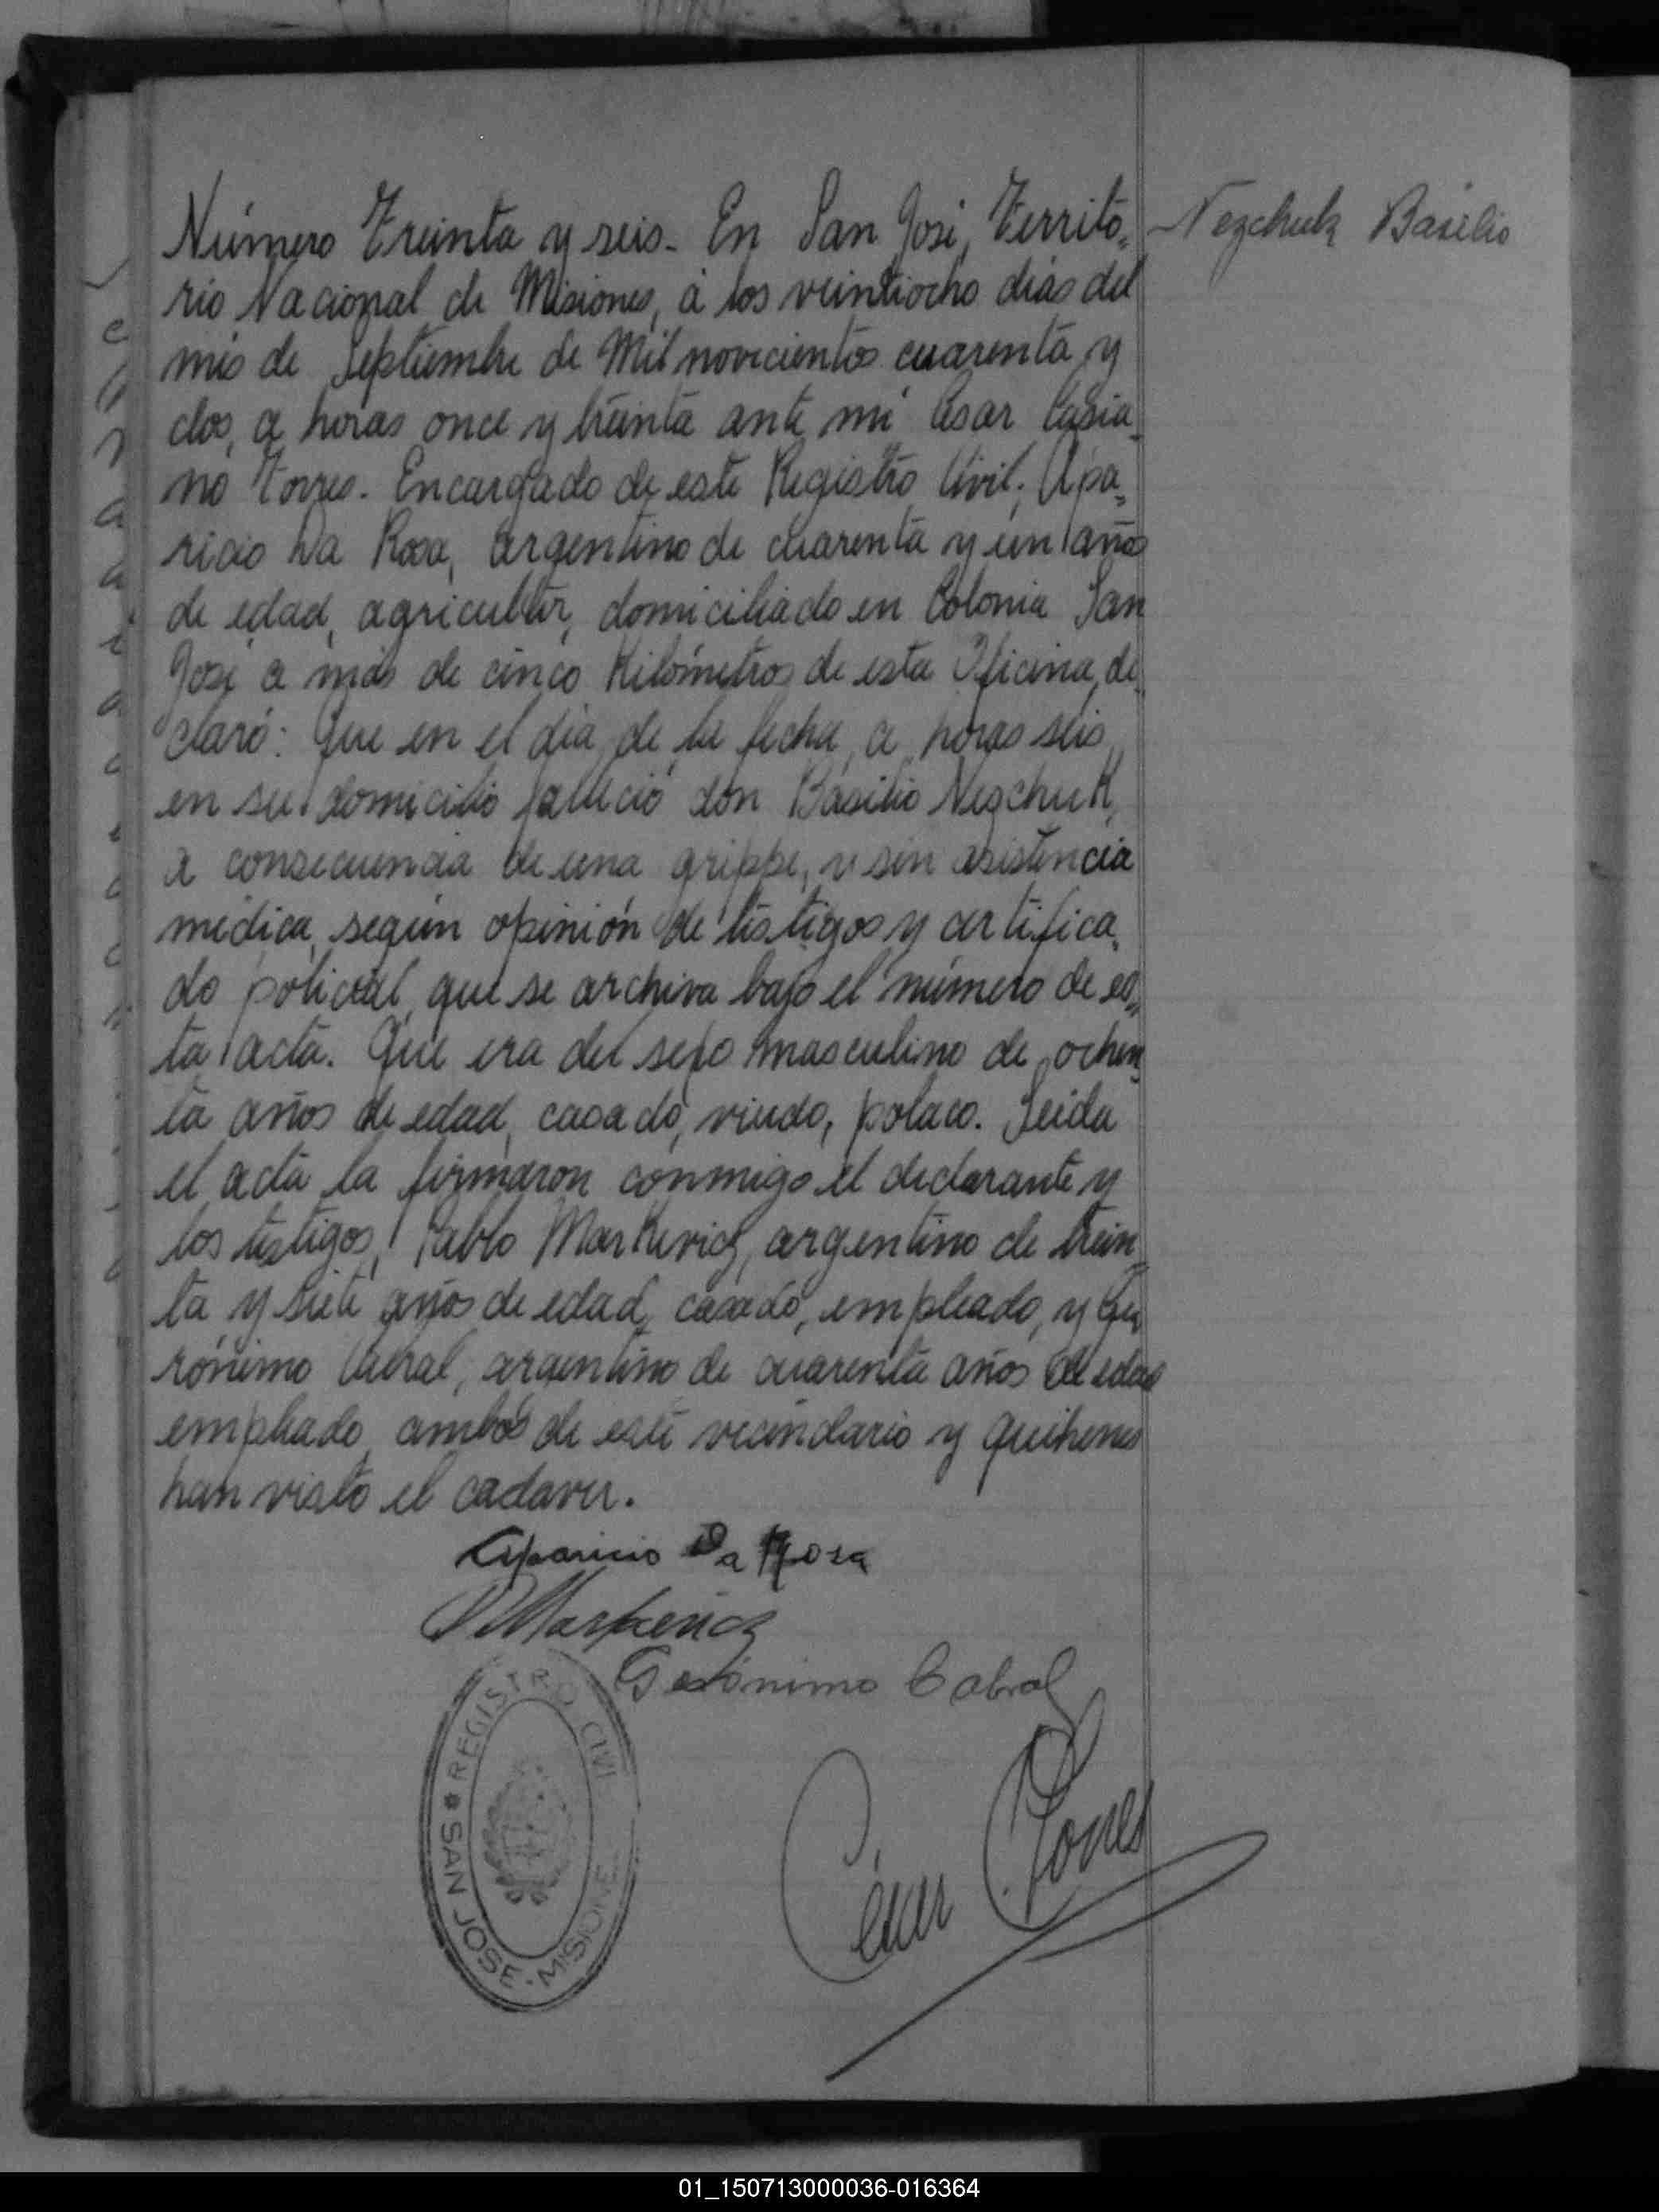 Número Treinta y seis.- En San José, Territo-
rio Nacional de Misiones, á los veintiocho dias del
mes de Septiembre de Mil novecientos cuarenta y
dos, a horas once y treinta ante mi Cesar Casia-
no Torres. Encargado de este Registro Civil; Apa-
ricio Da Rosa, argentino de cuarenta y un años
de edad, agricultor, domiciliado en Colonia San
José a más de cinco Kilómetros de esta Oficina, de-
claró: Que en el dia de la fecha, a horas seis,
en su domicilio falleció don Basilio Nezchuk,
a consecuencia de una grippe, y sin asistencia
médica, según opinión de testigos y certifica-
do policial, que se archiva bajo el número de es-
ta acta. Que era del sexo masculino de ochen-
ta años de edad, casado, viudo, polaco. Leida
el acta la firmaron conmigo el declarante y
los testigos, Pablo Markevich, argentino de trein-
ta y siete años de edad, casado, empleado, y Ge-
rónimo Cabral, argentino de cuarenta años de edad
empleado, ambos de este vecindario y quihenes
han visto el cadaver.
Nezchuk Basilio
Aparicio Da Rosa
P Markevich
Gerónimo Cabral
Cesar Torres
REGISTRO CIVIL
* SAN JOSE - MISIONES
01_150713000036-016364